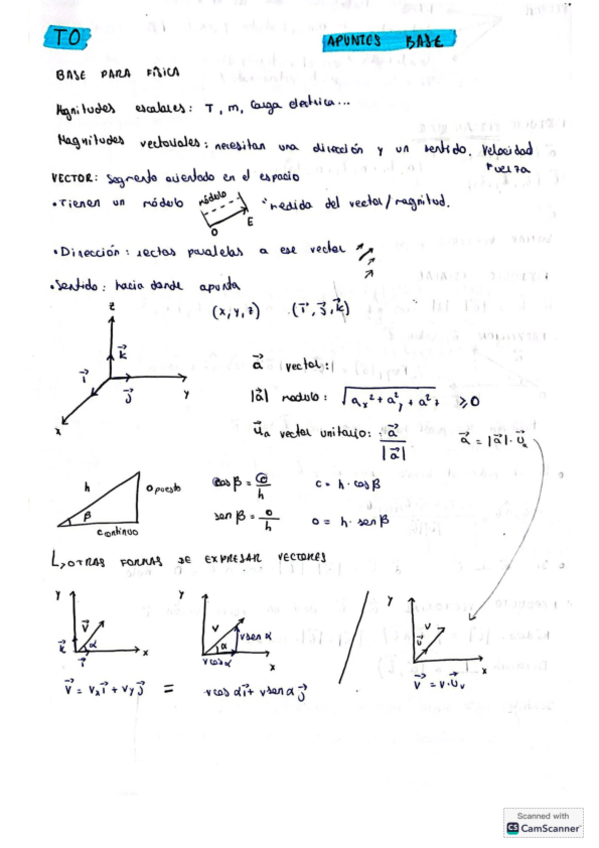 TO
APUNTES BASE
BASE PARA FÍSICA
Magnitudes escalares: T, m, Carga electrica...
Magnitudes vectoriales: necesitan una dirección y un sentido. Velocidad
Fuerza
VECTOR: Segmento orientado en el espacio
• Tienen un módulo
módulo
O
E
"medida del vector/magnitud.
• Dirección: rectas paralelas a ese vector
• Sentido: hacia donde apunta
z
k⃗
i⃗
j⃗
x
y
(x, y, z) (i⃗, j⃗, k⃗)
a⃗ vector:
|a⃗| modulo: √(aₓ² + a²y + a²z) ≥ 0
u⃗ₐ vector unitario: a⃗ / |a⃗|
a⃗ = |a⃗| · u⃗ₐ
h
opuesto
β
continuo
cos β = c/h c = h · cos β
sen β = o/h o = h · sen β
↳ OTRAS FORMAS DE EXPRESAR VECTORES
y
k⃗
v⃗
α
i⃗
x
v⃗ = vₓi⃗ + vyj⃗ =
y
v
α
v sen α
v cos α
x
v cos α i⃗ + v sen α j⃗
y
v
u⃗
x
v⃗ = v · u⃗ᵥ
Scanned with
CS CamScanner